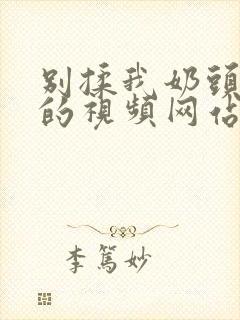 别揉我奶頭
的視頻网佔
李篤妙